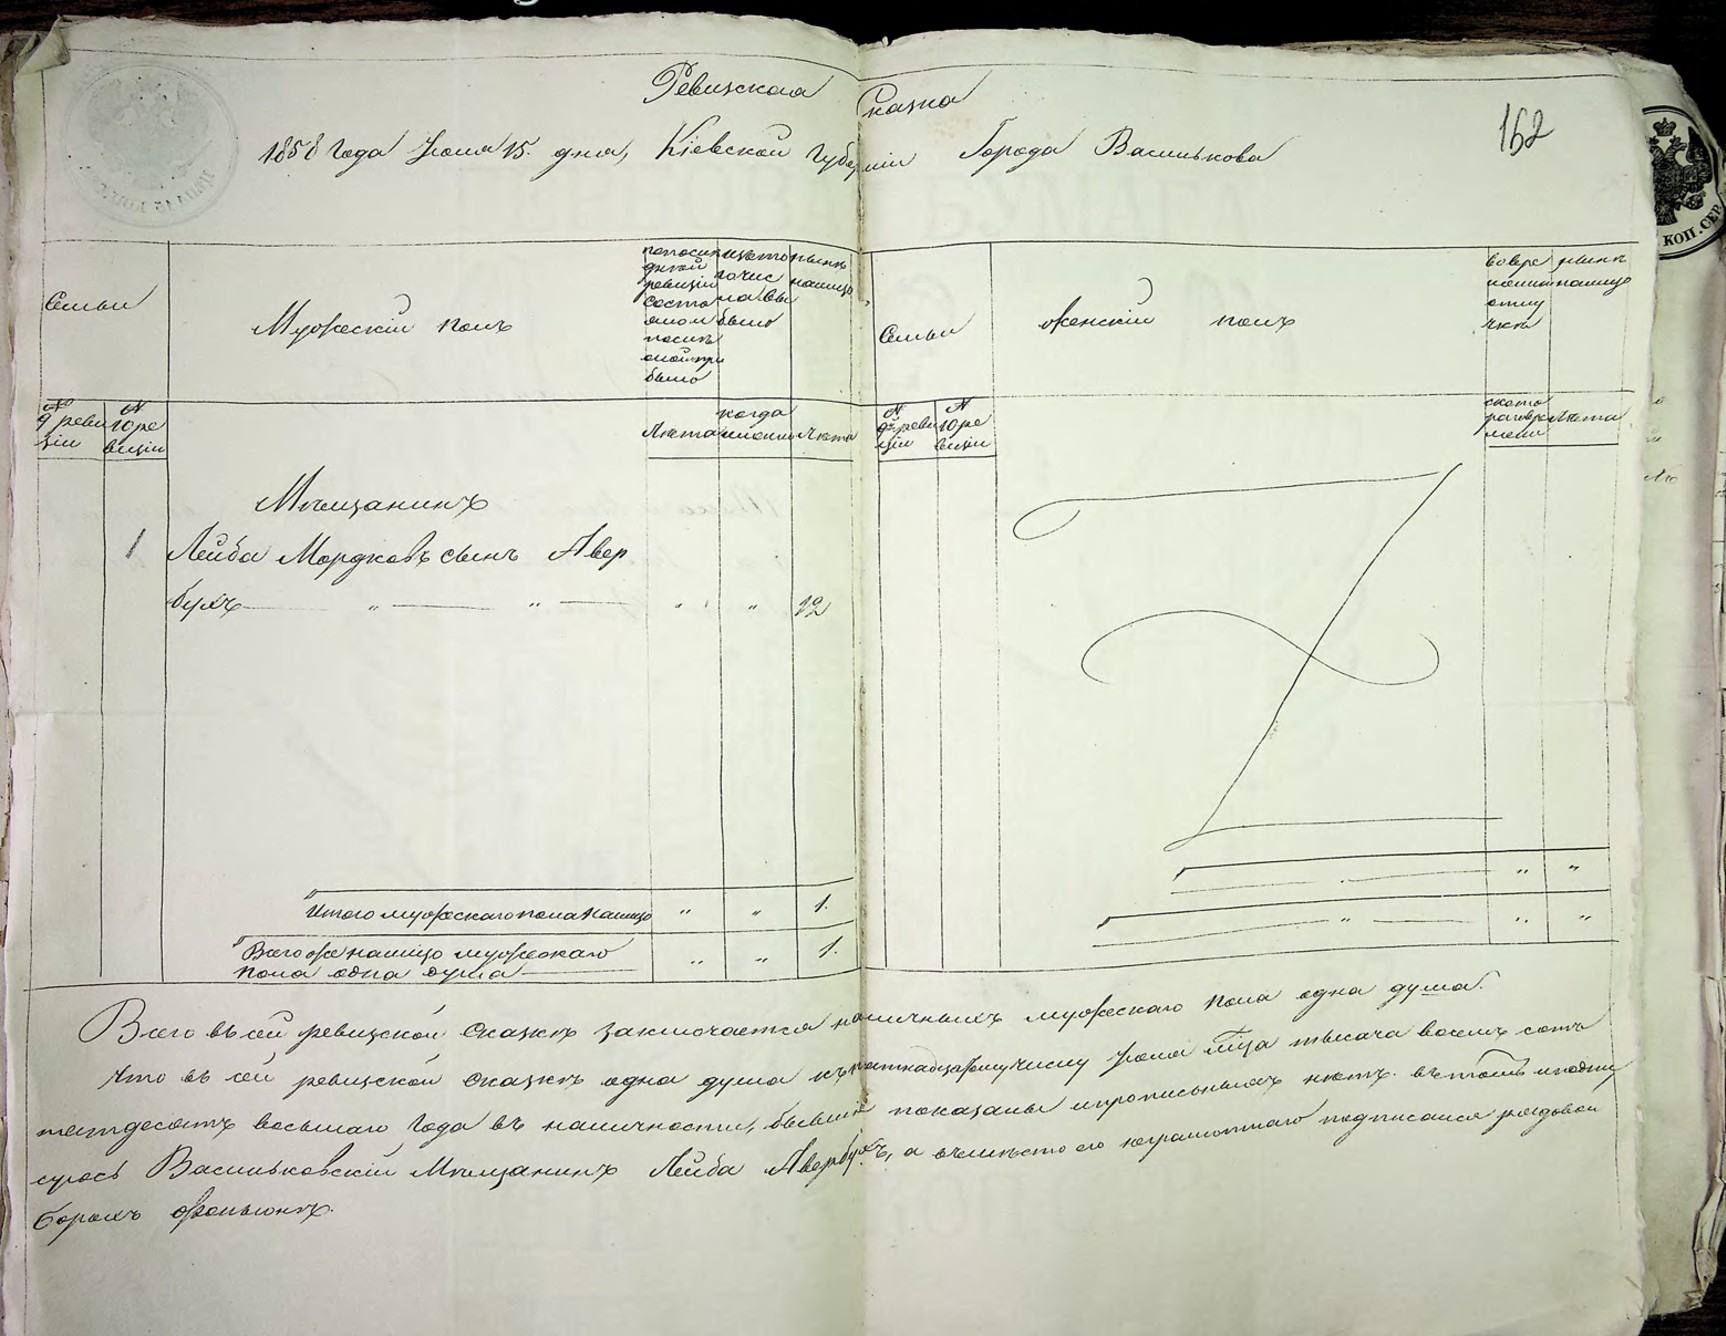 Ревизская Сказка
162
1858 года Іюля 15. дня, Кіевской Губерніи Города Василькова
КОП. СЕР
Семьи
Мужескій полъ
по послѣ
дней
ревизіи
состо
яло и
послѣ
оной при
было
изъ то
го чис
ла вы
было
нынѣ
налицо
Семьи
женскій полъ
во вре
менной
отлу
чкѣ
нынѣ
налицо
№
9 реви
зіи
№
10 ре
визіи
Лѣта
когда
именно
Лѣта
№
9й реви
зіи
№
10 ре
визіи
съ кото
раго вре
мени
Лѣта
Мѣщанинъ
1 Лейба Мордковъ сынъ Авер
бухъ — „ — „ — „ „ 12
Итого мужескаго пола налицо „ „ 1.
Всего же налицо мужескаго
пола одна душа — „ „ 1.
Всего въ сей ревизской сказкѣ заключается наличныхъ мужескаго пола одна душа.
Что въ сей ревизской сказкѣ одна душа къ пятнадцатому числу Іюля мѣсяца тысяча восемь сотъ
пятдесятъ восьмаго года въ наличности, бывшіе показаны и прописныхъ нѣтъ. въ томъ и подпи
суюсь Васильковскій Мѣщанинъ Лейба Авербухъ, а вмѣсто его неграмотнаго подписался рядовой
Борохъ